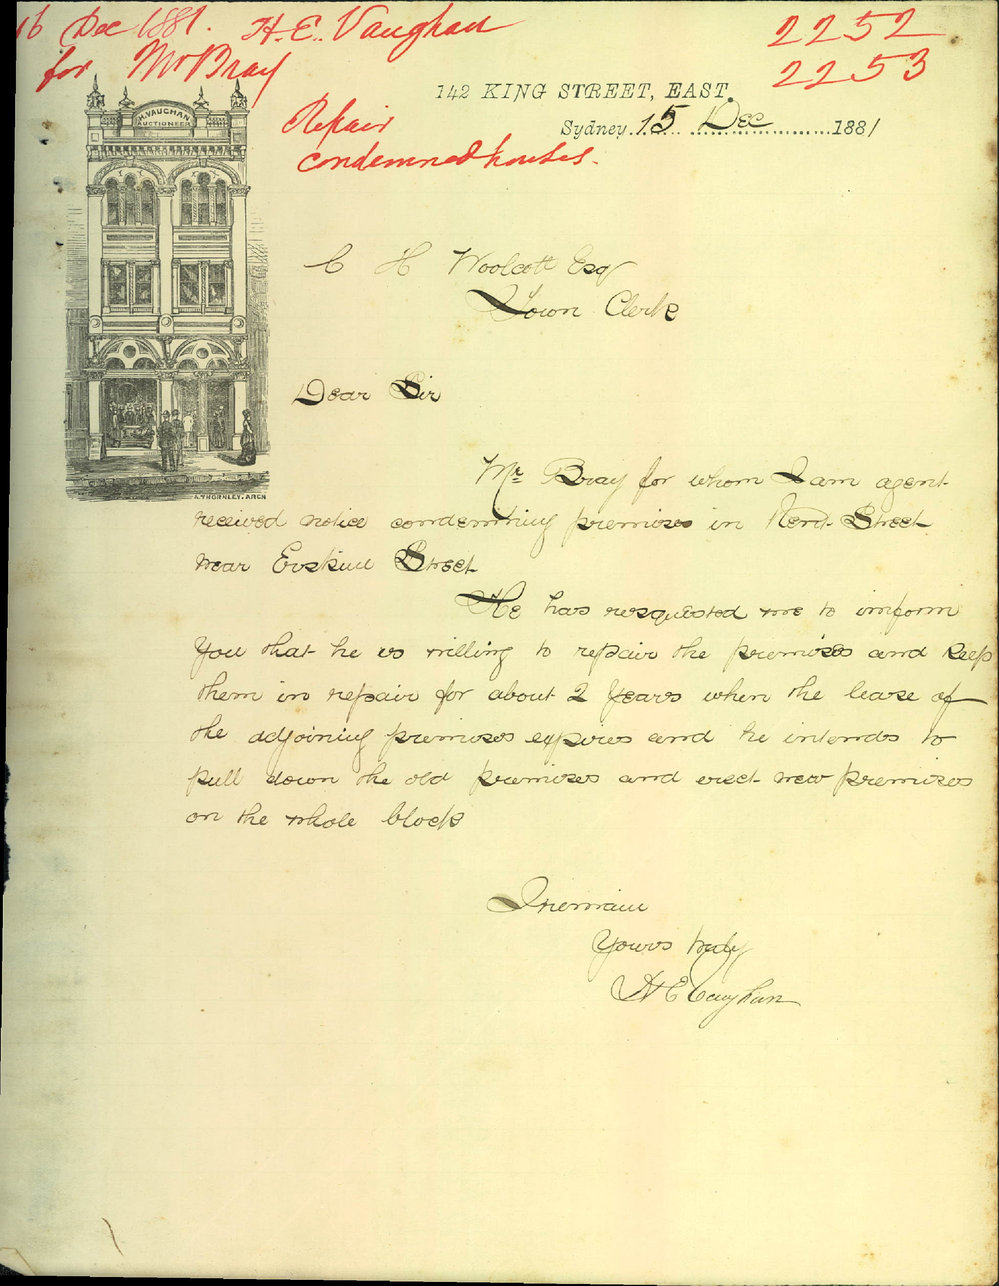 16 Dec 1881. H. E. Vaughan
for Mr Bray
2252
2253
Repair
condemned houses.
H. VAUGHAN
AUCTIONEER
A. THORNLEY. ARCH
142 KING STREET, EAST.
Sydney 15 Dec 1881
C H Woolcott Esq
Town Clerk
Dear Sir
Mr Bray for whom I am agent
received notice condemning premises in Kent Street
near Erskine Street
He has requested me to inform
you that he is willing to repair the premises and keep
them in repair for about 2 years when the lease of
the adjoining premises expires and he intends to
pull down the old premises and erect new premises
on the whole block
I remain
Yours truly
H E Vaughan